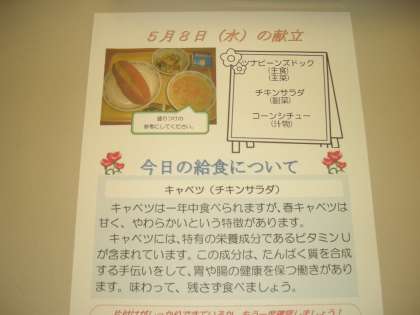 5月8日（水）の献立
ツナビーンズドック
（主食）
（主菜）
チキンサラダ
（副菜）
コーンシチュー
（汁物）
盛りつけの
参考にしてください。
今日の給食について
キャベツ（チキンサラダ）
キャベツは一年中食べられますが、春キャベツは
甘く、やわらかいという特徴があります。
キャベツには、特有の栄養成分であるビタミンU
が含まれています。この成分は、たんぱく質を合成
する手伝いをして、胃や腸の健康を保つ働きがあり
ます。味わって、残さず食べましょう。